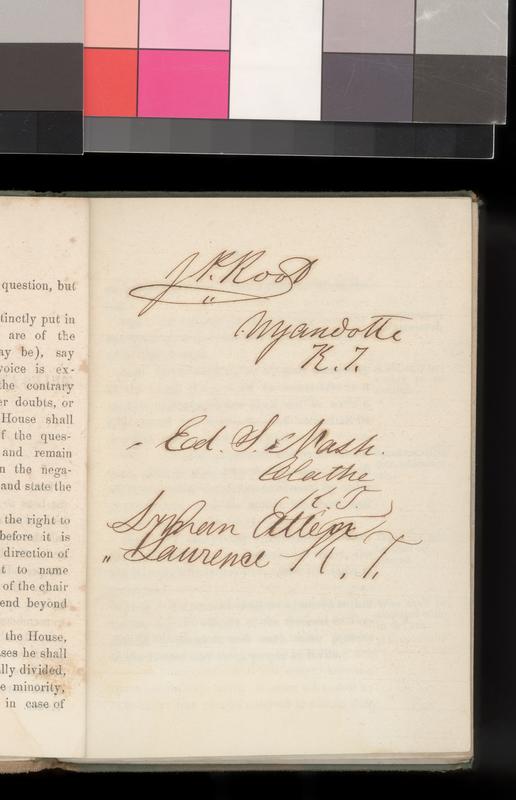 question, but
tinctly put in
are of the
ay be), say
voice is ex-
the contrary
er doubts, or
House shall
f the ques-
and remain
n the nega-
and state the
the right to
before it is
direction of
t to name
of the chair
end beyond
the House,
ses he shall
lly divided,
e minority,
in case of
J P. Root
Wyandotte
K. T.
Ed. S. Nash.
Olathe
K. T.
Lyman Allen
" Lawrence K. T.